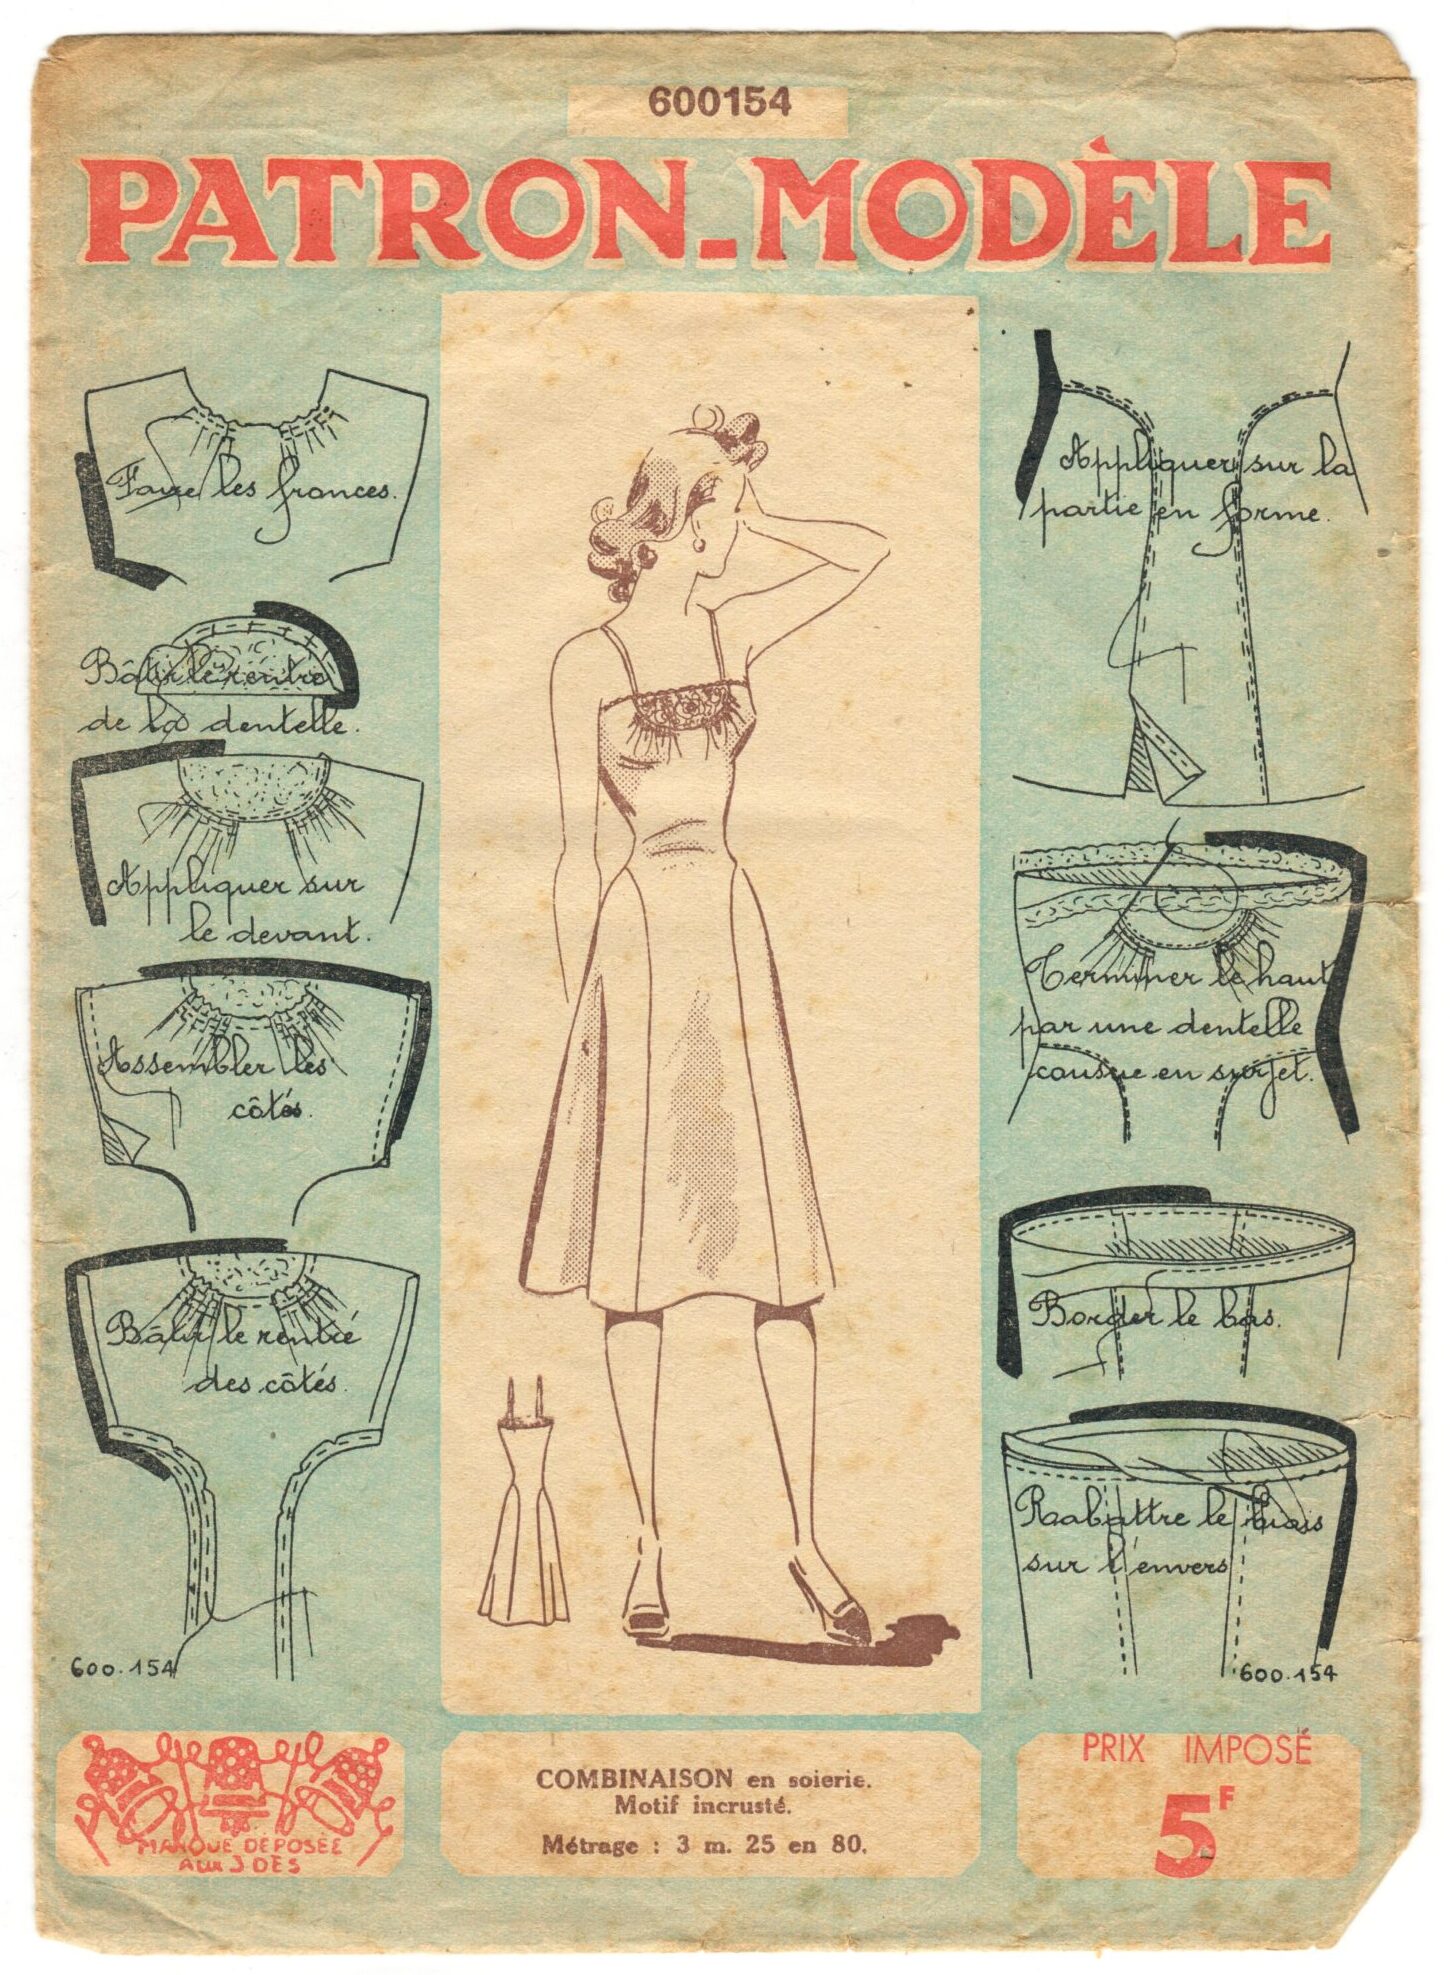 600154
PATRON-MODÈLE
Faire les fronces.
Bâtir le rentré
de la dentelle.
Appliquer sur
le devant.
Assembler les
côtés.
Bâtir le rentré
des côtés.
600.154
Appliquer sur la
partie en forme.
Terminer le haut
par une dentelle
cousue en surjet.
Border le bas.
Rabattre le biais
sur l'envers
600.154
MARQUE DÉPOSÉE
AUX 3 DÉS
COMBINAISON en soierie.
Motif incrusté.
Métrage : 3 m. 25 en 80.
PRIX IMPOSÉ
5F